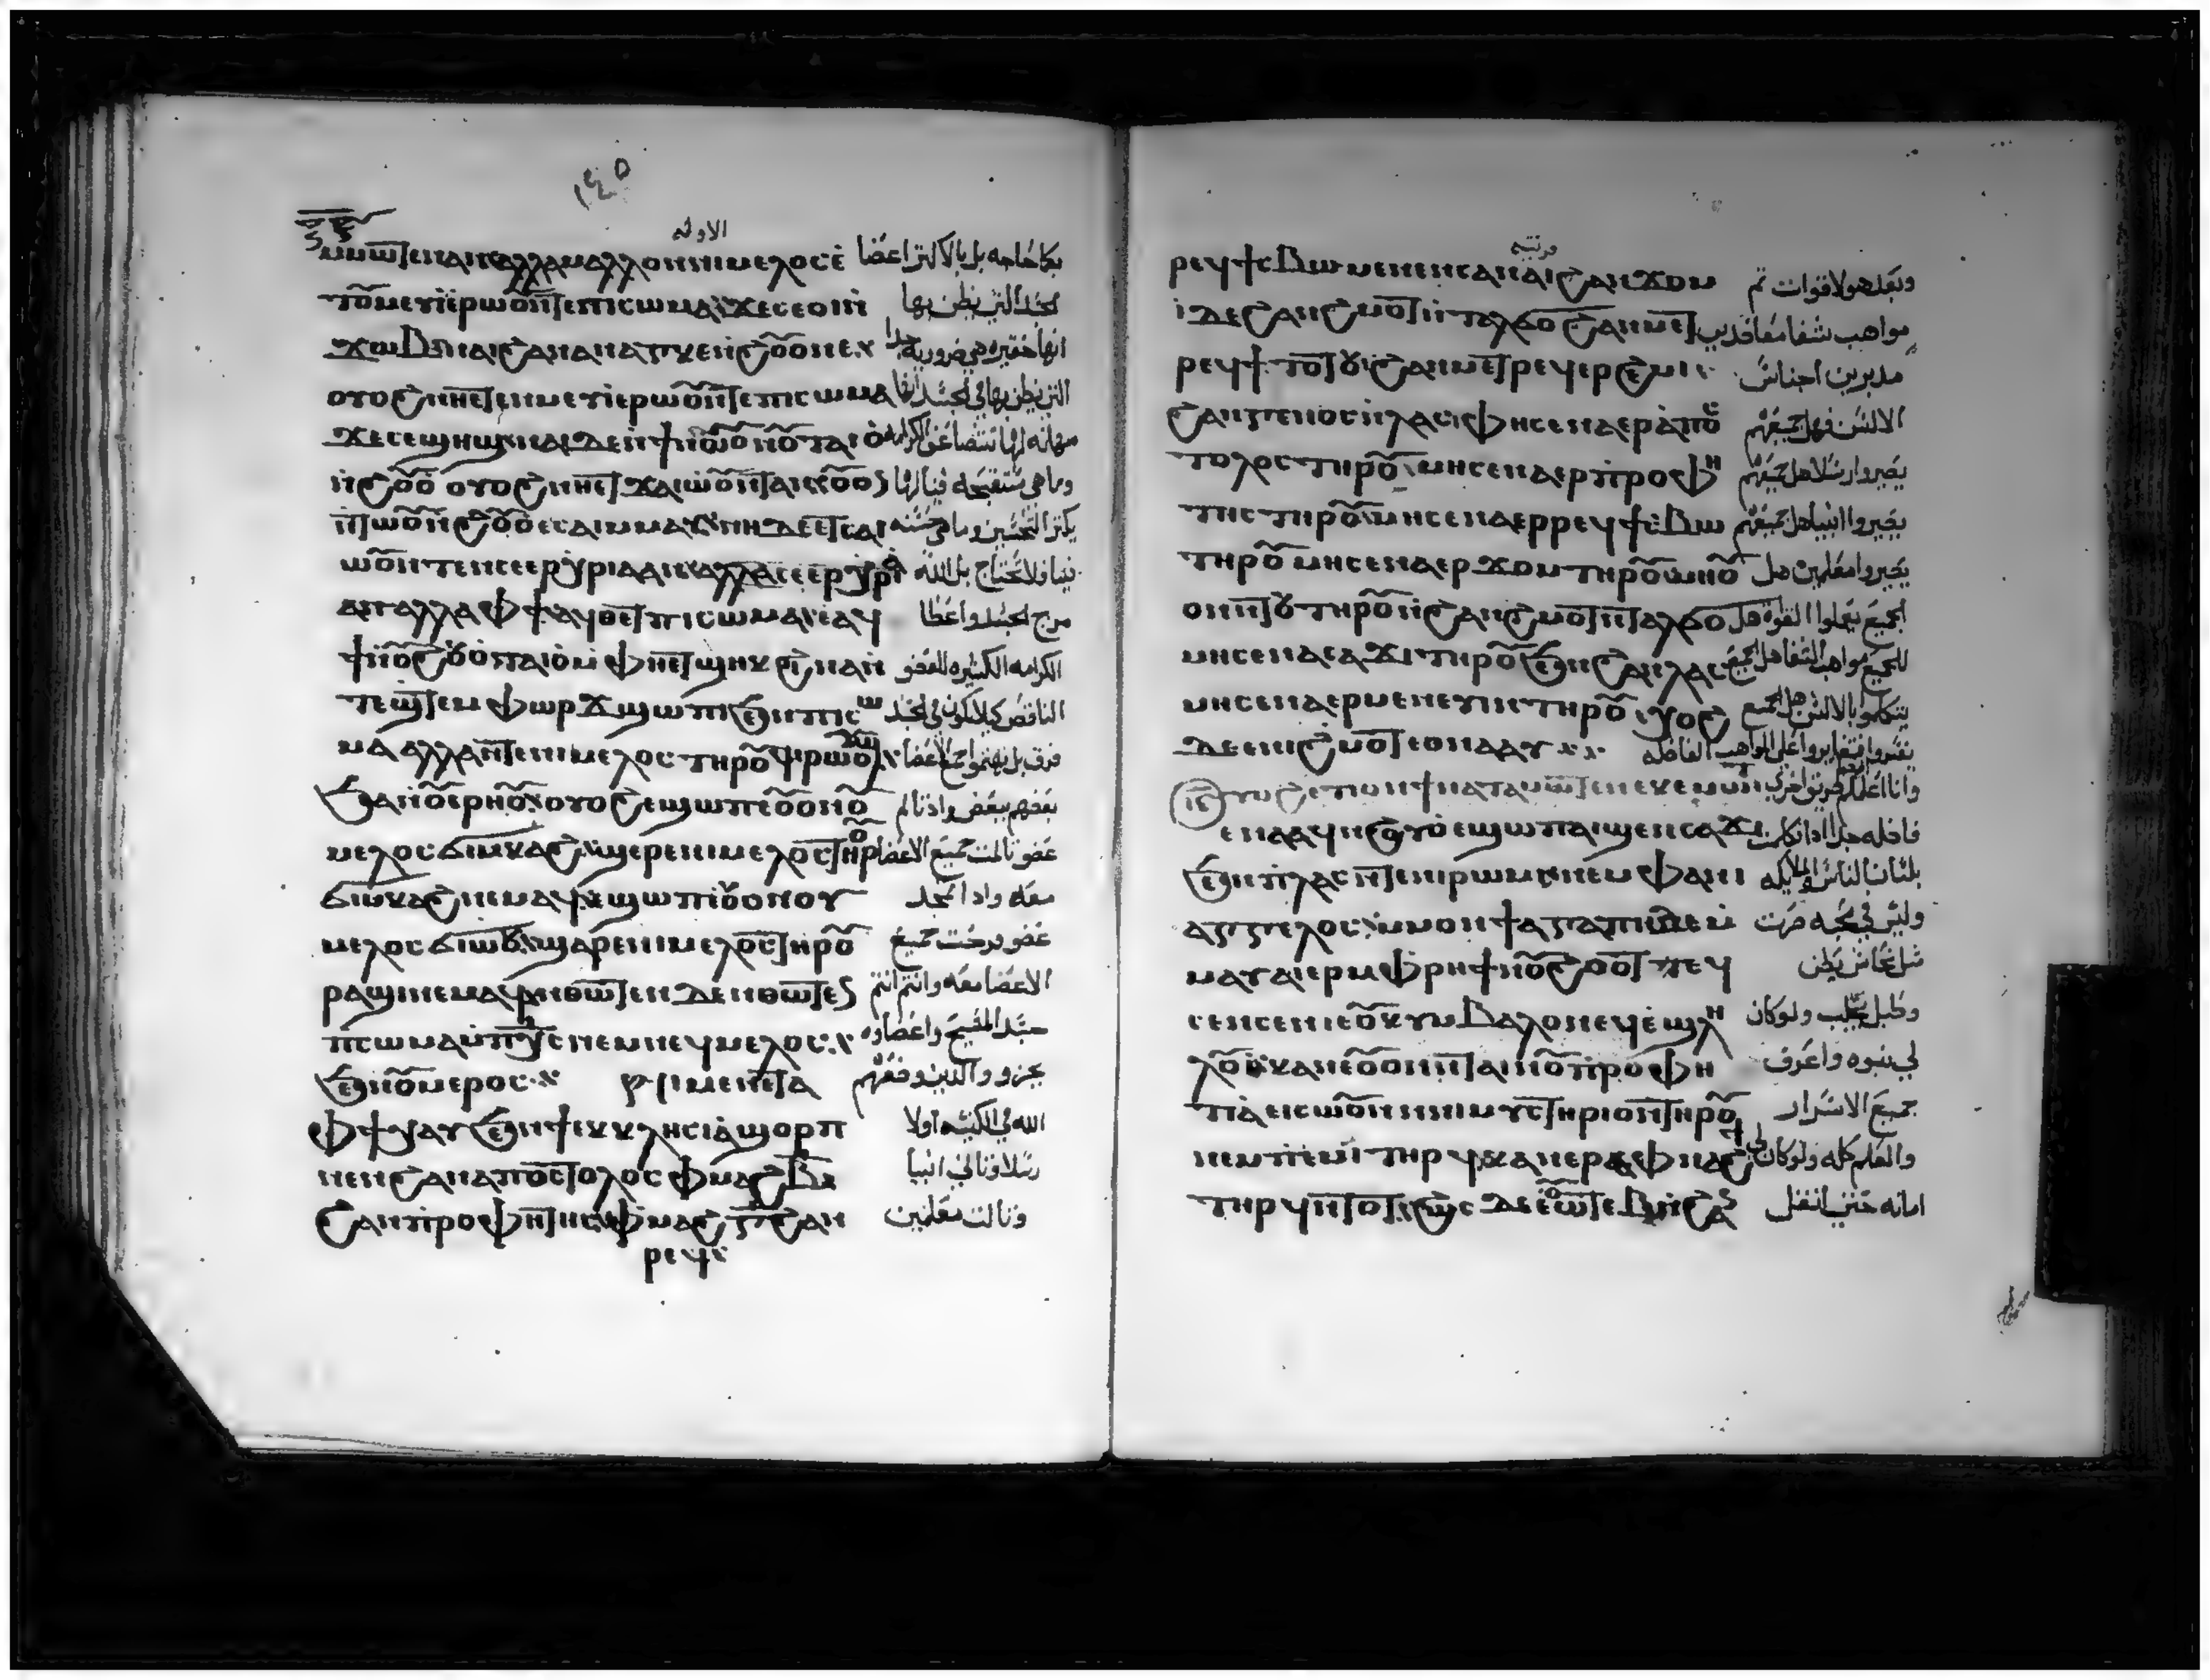 ١٤٥
الاوله
ⲙⲙⲱⲧⲉⲛ ⲁⲛ ⲁⲗⲗⲁ ⲙⲁⲗⲗⲟⲛ ⲛⲓⲙⲉⲗⲟⲥ ⲉ بكما حاجه بل بالاكتر اعضا
ⲧⲟⲩⲙⲉⲩⲓ ⲉⲣⲱⲟⲩ ⲛⲧⲉ ⲡⲓⲥⲱⲙⲁ ϫⲉ ⲥⲉⲟⲓ ⲛ الجسد التي يظن بها
ϫⲱⲃ ⲛⲁⲓ ϩⲁⲛⲁⲛⲁⲅⲕⲉⲛ ϩⲟⲩⲟ ⲛⲉ انها حقيره هي ضروريه جدا
ⲟⲩⲟϩ ⲛⲏ ⲉⲧⲉⲛⲙⲉⲩⲓ ⲉⲣⲱⲟⲩ ⲛⲧⲉ ⲡⲓⲥⲱⲙⲁ التي يظن بها في الجسد انها
ϫⲉ ⲥⲉϣⲏϣ ⲛⲁⲓ ⲇⲉ ⲧⲉⲛϯ ⲛⲱⲟⲩ ⲛⲟⲩⲧⲁⲓⲟ مهانه
ⲛϩⲟⲩⲟ ⲟⲩⲟϩ ⲛⲏ ⲉⲧϫⲁⲓⲱⲟⲩ ⲛⲧⲁⲛ وما هي مستقبحه فينا لها
ⲛⲧⲱⲟⲩ ⲛϩⲟⲩⲟ ⲉⲥⲁⲓ ⲙⲙⲁⲩ ⲛⲏ ⲇⲉ ⲉⲧⲥⲁⲓ يكتر التحسين وما هي حسنه
ⲱⲟⲩ ⲛⲧⲉⲛ ⲥⲉⲉⲣⲭⲣⲓⲁ ⲁⲛ ⲁⲗⲗⲁ ⲥⲉⲉⲣⲭⲣⲓⲁ فينا فلا تحتاج بل الله
ⲁⲛ ⲁⲗⲗⲁ ⲫϯ ⲁϥⲑⲉⲧ ⲡⲓⲥⲱⲙⲁ ⲉⲁϥ مزج الجسد واعطا
ϯ ⲛⲟⲩϩⲟⲩⲟ ⲧⲁⲓⲟ ⲙⲫⲏ ⲉⲧϣⲏⲕ ϩⲓⲛⲁ ⲛ الكرامه الكثيره للعضو
ⲧⲉϣⲧⲉⲙ ⲫⲱⲣϫ ϣⲱⲡⲓ ϧⲉⲛ ⲡⲓⲥⲱ الناقص كيلا يكون في الجسد
ⲙⲁ ⲁⲗⲗⲁ ⲛⲧⲉ ⲛⲓⲙⲉⲗⲟⲥ ⲧⲏⲣⲟⲩ ϥⲓⲣⲱⲟⲩϣ فرق بل يهتموا جميع الاعضا
ϧⲁ ⲛⲟⲩⲉⲣⲏⲟⲩ ⲟⲩⲟϩ ⲉϣⲱⲡ ⲉⲟⲩⲟⲛ ⲟⲩ بعضهم ببعض واذا تالم
ⲙⲉⲗⲟⲥ ϭⲓⲙⲕⲁϩ ϣⲁⲣⲉ ⲛⲓⲙⲉⲗⲟⲥ ⲧⲏⲣⲟⲩ عضو تالمت جميع الاعضا
ϭⲓⲙⲕⲁϩ ⲛⲉⲙⲁϥ ⲉϣⲱⲡ ⲟⲩⲟⲛ ⲟⲩ معه واذا تمجد
ⲙⲉⲗⲟⲥ ϭⲓⲱⲟⲩ ϣⲁⲣⲉ ⲛⲓⲙⲉⲗⲟⲥ ⲧⲏⲣⲟⲩ عضو فرحت جميع
ⲣⲁϣⲓ ⲛⲉⲙⲁϥ ⲛⲑⲱⲧⲉⲛ ⲇⲉ ⲛⲑⲱⲧⲉⲛ الاعضا معه وانتم انتم
ⲡⲥⲱⲙⲁ ⲙⲡⲭⲥ ⲛⲉⲙ ⲛⲉϥⲙⲉⲗⲟⲥ جسد المسيح واعضاوه
ϧⲉⲛ ⲟⲩⲙⲉⲣⲟⲥ ⲟⲩⲟϩ ϩⲁⲛⲟⲩⲟⲛ ⲙⲉⲛ ⲉⲧⲁ بجزو والذين وضعهم
ⲫϯ ⲭⲁⲩ ϧⲉⲛ ϯⲉⲕⲕⲗⲏⲥⲓⲁ ϣⲟⲣⲡ الله في الكنيسه اولا
ⲙⲉⲛ ϩⲁⲛⲁⲡⲟⲥⲧⲟⲗⲟⲥ ⲫⲙⲁϩ ⲃ̅ رسلا وثاني انبيا
ϩⲁⲛⲡⲣⲟⲫⲏⲧⲏⲥ ⲫⲙⲁϩ ⲅ̅ ϩⲁⲛ وثالث معلمين
ⲣⲉϥ
ⲣⲉϥϯⲥⲃⲱ ⲙⲉⲛⲉⲛⲥⲁ ⲛⲁⲓ ϩⲁⲛϫⲟⲙ وبعد هولا قوات تم
ⲓⲧⲁ ϩⲁⲛϩⲙⲟⲧ ⲛⲧⲁⲗϭⲟ ϩⲁⲛⲙⲉⲧ مواهب شفا معاضدين
ⲣⲉϥϯⲧⲟⲧⲟⲩ ϩⲁⲛⲙⲉⲧⲣⲉϥⲉⲣϩⲉⲙⲓ مدبرين اجناس
ϩⲁⲛⲅⲉⲛⲟⲥ ⲛⲗⲁⲥ ⲙⲏ ⲥⲉⲛⲁⲉⲣⲁⲡⲟⲥ الالسن فهل جميعهم
ⲧⲟⲗⲟⲥ ⲧⲏⲣⲟⲩ ⲙⲏ ⲥⲉⲛⲁⲉⲣⲡⲣⲟⲫⲏ يصيروا رسلا هل جميعهم
ⲧⲏⲥ ⲧⲏⲣⲟⲩ ⲙⲏ ⲥⲉⲛⲁⲉⲣⲣⲉϥϯⲥⲃⲱ يصيروا انبيا هل جميعهم
ⲧⲏⲣⲟⲩ ⲙⲏ ⲥⲉⲛⲁⲉⲣϫⲟⲙ ⲧⲏⲣⲟⲩ ⲙⲏ ⲟⲩ يصيروا معلمين هل
ⲟⲛⲧⲟⲩ ⲧⲏⲣⲟⲩ ⲛϩⲁⲛϩⲙⲟⲧ ⲛⲧⲁⲗϭⲟ الجميع يعملوا القوه هل
ⲙⲏ ⲥⲉⲛⲁⲥⲁϫⲓ ⲧⲏⲣⲟⲩ ϧⲉⲛ ϩⲁⲛⲗⲁⲥ للجميع مواهب الشفا هل الجميع
ⲙⲏ ⲥⲉⲛⲁⲉⲣⲙⲉⲛⲉⲩⲓⲛ ⲧⲏⲣⲟⲩ ⲭⲟϩ يتكلموا بالالسن هل الجميع
ⲇⲉ ⲉⲛⲓϩⲙⲟⲧ ⲉⲑⲛⲁⲁⲩ يفسروا فتغايروا على المواهب الفاضله
ⲟⲩⲟϩ ⲉⲧⲓ ⲟⲛ ϯⲛⲁⲧⲁⲙⲱⲧⲉⲛ ⲉⲕⲉⲙⲱⲓⲧ وانا اعلمكم طريق اخري
ⲉⲛⲁⲁϥ ⲛϩⲟⲩⲟ ⲉϣⲱⲡ ⲁⲓϣⲁⲛⲥⲁϫⲓ فاضله جدا اذا تكلمت
ϧⲉⲛ ⲡⲗⲁⲥ ⲛⲧⲉ ⲛⲓⲣⲱⲙⲓ ⲛⲉⲙ ⲫⲁ ⲛⲓ بلسان الناس والملايكه
ⲁⲅⲅⲉⲗⲟⲥ ⲙⲙⲟⲛ ϯⲁⲅⲁⲡⲏ ⲇⲉ ⲛ وليس في محبه صرت
ⲙⲁⲩ ⲁⲓⲉⲣ ⲙⲫⲣⲏϯ ⲛⲟⲩϩⲟⲙⲧ ⲉϥ مثل نحاس يطن
ⲥⲉⲛⲥⲉⲛ ⲓⲉ ⲟⲩⲕⲩⲙⲃⲁⲗⲟⲛ ⲉϥⲉϣⲗⲏ وطبل يجلب ولو كان
ⲗⲟⲩⲓ ⲕⲁⲛ ⲉⲟⲩⲟⲛⲧⲏⲓ ⲛⲟⲩⲡⲣⲟⲫⲏ لي نبوه واعرف
ⲧⲓⲁ ⲉⲓⲥⲱⲟⲩⲛ ⲛⲛⲓⲙⲩⲥⲧⲏⲣⲓⲟⲛ ⲧⲏⲣⲟⲩ جميع الاسرار
ⲛⲉⲙ ⲡⲓⲉⲙⲓ ⲧⲏⲣϥ ⲕⲁⲛ ⲫⲛⲁϩϯ والعلم كله ولو كان لي
ⲧⲏⲣϥ ⲛⲧⲟⲧ ϩⲱⲥ ⲇⲉ ⲉⲟⲩⲱⲧⲉⲃ ⲛϩⲁⲛ امانه حتي انقل